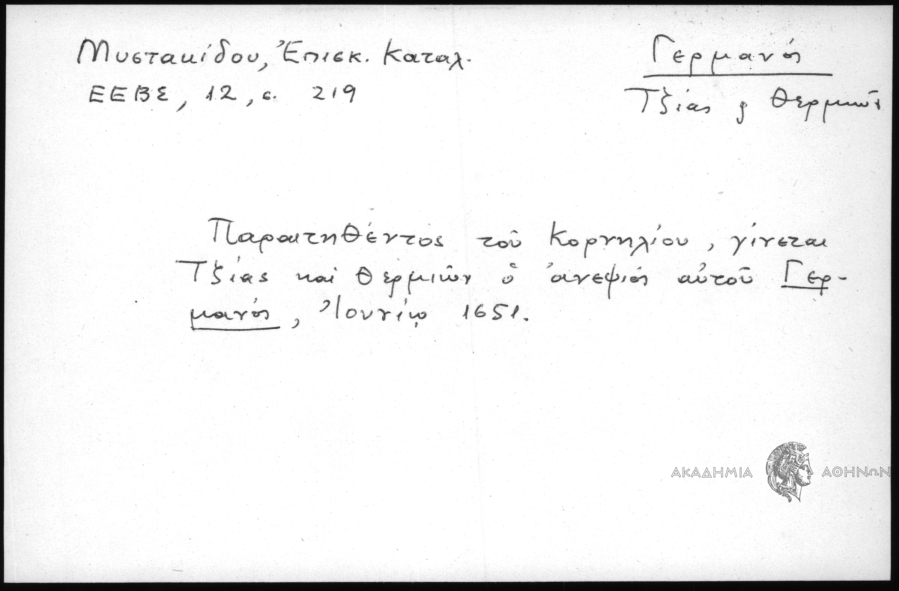 Μυστακίδου, Ἐπισκ. Καταλ.
ΕΕΒΣ, 12, σ. 219
Γερμανός
Τζίας ϗ Θερμιῶν
Παραιτηθέντος τοῦ Κορνηλίου, γίνεται
Τζίας καὶ Θερμιῶν ὁ ἀνεψιός αὐτοῦ Γερ-
μανός, Ἰουνίῳ 1651.
ΑΚΑΔΗΜΙΑ ΑΘΗΝΩΝ